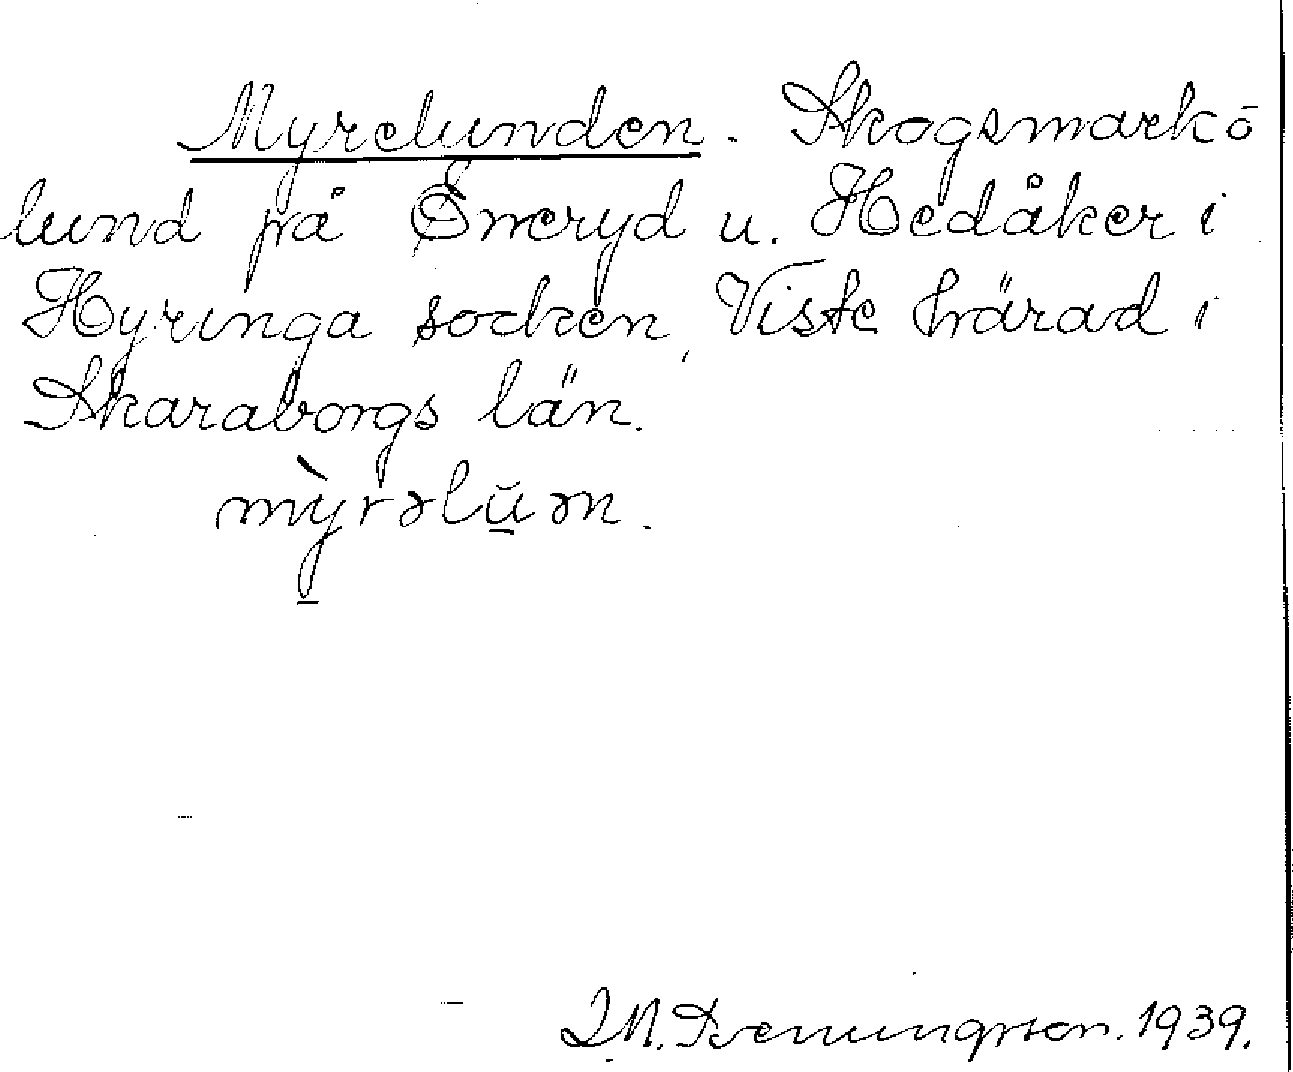 Myrelunden. Skogsmark o
lund på Öneryd u. Hedåker i
Hyringa socken, Viste härad i
Skaraborgs län.
mỳrəlŭ̱ən.
1939.